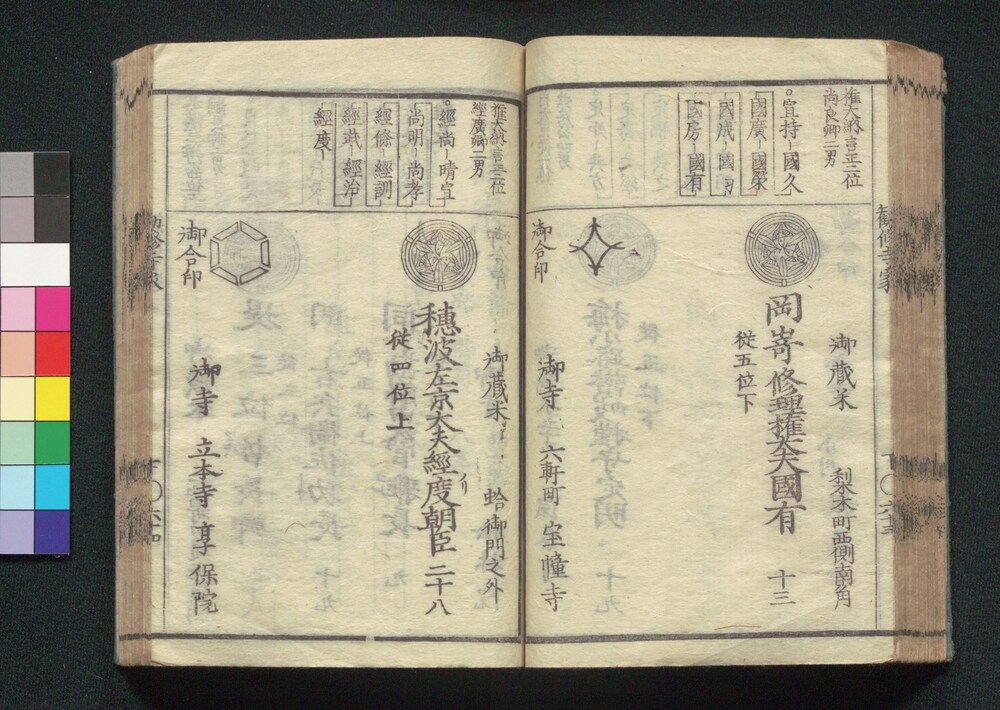 勧修寺家
權大納言正三位
尚良卿二男
宣持 國久
國廣 國榮
國成 國
國房 國有
御藏米 梨木町西側南角
岡嵜修理權大夫國有 十三
從五位下
御合印
御寺 六軒町 宝幢寺
權大納言正三位
經廣卿二男
經尚 晴宣
尚明 尚孝
經條 經訓
經武 經治
經度
御藏米 蛤御門之外
穗波左京大夫經度朝臣 二十八
從四位上
御合印
御寺 立本寺 享保院